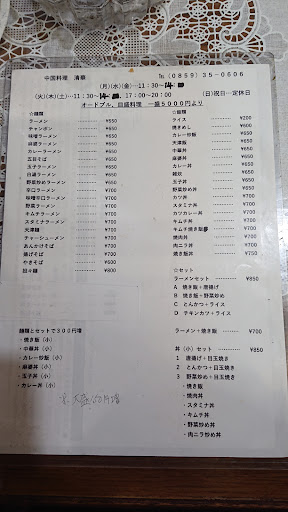 中国料理 清華
℡(0859)35-0606
(月)(水)(金)…11:30~14:00
(火)(木)(土)…11:30~14:00 17:00~20:00 (日)祝日…定休日
オードブル、皿盛料理 一盛5000円より
☆麺類
ラーメン ………… ¥550
チャンポン ………… ¥650
味噌ラーメン ………… ¥650
麻婆ラーメン ………… ¥650
カレーラーメン ………… ¥650
五目そば ………… ¥650
玉子ラーメン ………… ¥650
白湯ラーメン ………… ¥650
野菜炒めラーメン ………… ¥650
辛口ラーメン ………… ¥700
味噌辛口ラーメン ………… ¥700
野菜ラーメン ………… ¥700
キムチラーメン ………… ¥700
スタミナラーメン ………… ¥700
天津麺 ………… ¥700
チャーシューメン ………… ¥700
あんかけそば ………… ¥700
揚げそば ………… ¥700
やきそば ………… ¥600
担々麺 ………… ¥800
麺類とセットで300円増
・焼き飯(小)
・中華丼(小)
・カレー炒飯(小)
・麻婆丼(小)
・玉子丼(小)
・カレー丼(小)
☆飯類
ライス ………… ¥200
焼きめし ………… ¥600
カレー炒飯 ………… ¥650
天津飯 ………… ¥650
中華丼 ………… ¥650
麻婆丼 ………… ¥650
カレー丼 ………… ¥650
雑炊 ………… ¥650
玉子丼 ………… ¥650
野菜炒め丼 ………… ¥700
カツ丼 ………… ¥700
スタミナ丼 ………… ¥700
カツカレー丼 ………… ¥700
キムチ丼 ………… ¥700
キムチ焼き飯 ………… ¥700
焼肉丼 ………… ¥700
肉ニラ丼 ………… ¥700
焼き豚飯 ………… ¥750
☆セット
ラーメンセット ………… ¥850
A 焼き飯+唐揚げ
B 焼き飯・野菜炒め
C とんかつ+ライス
D チキンカツ+ライス
ラーメン+焼き飯 ………… ¥700
丼(小)セット ………… ¥850
1 唐揚げ+目玉焼き
2 とんかつ+目玉焼き
3 野菜炒め+目玉焼き
・焼き飯
・焼肉丼
・スタミナ丼
・キムチ丼
・野菜炒め丼
・肉ニラ炒め丼
※大盛100円増